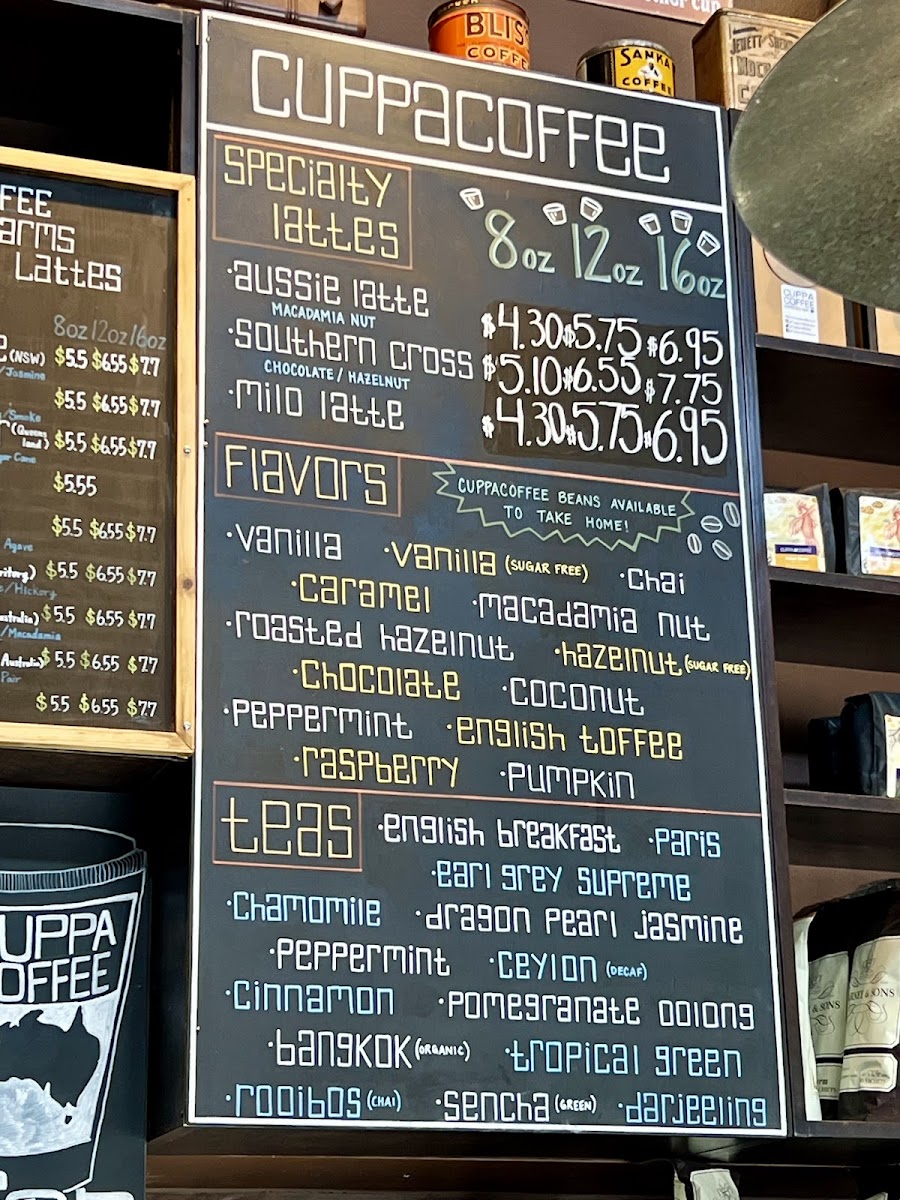 BLISS
COFFEE
SANKA
COFFEE
CUPPACOFFEE
Specialty
lattes
8oz 12oz 16oz
·aussie latte $4.30 $5.75 $6.95
MACADAMIA NUT
·southern cross $5.10 $6.55 $7.75
CHOCOLATE / HAZELNUT
·milo latte $4.30 $5.75 $6.95
Flavors
CUPPACOFFEE BEANS AVAILABLE
TO TAKE HOME!
·vanilla ·vanilla (SUGAR FREE) ·chai
·caramel ·macadamia nut
·roasted hazelnut ·hazelnut (SUGAR FREE)
·chocolate ·coconut
·peppermint ·english toffee
·raspberry ·pumpkin
teas
·english breakfast ·paris
·earl grey supreme
·chamomile ·dragon pearl jasmine
·peppermint ·ceylon (DECAF)
·cinnamon ·pomegranate oolong
·bangkok (ORGANIC) ·tropical green
·rooibos (CHAI) ·sencha (GREEN) ·darjeeling
FEE
arms
Lattes
8oz 12oz 16oz
(NSW) $5.5 $6.55 $7.7
/Jasmine
$5.5 $6.55 $7.7
/Smoke
(Queensland) $5.5 $6.55 $7.7
gar Cane
$5.55
$5.5 $6.55 $7.7
Agave
ritory) $5.5 $6.55 $7.7
s/Hickory
ustralia) $5.5 $6.55 $7.7
/Macadamia
Australia) $5.5 $6.55 $7.7
Pair
$5.5 $6.55 $7.7
UPPA
OFFEE
CUPPA
COFFEE
& SONS
& SONS